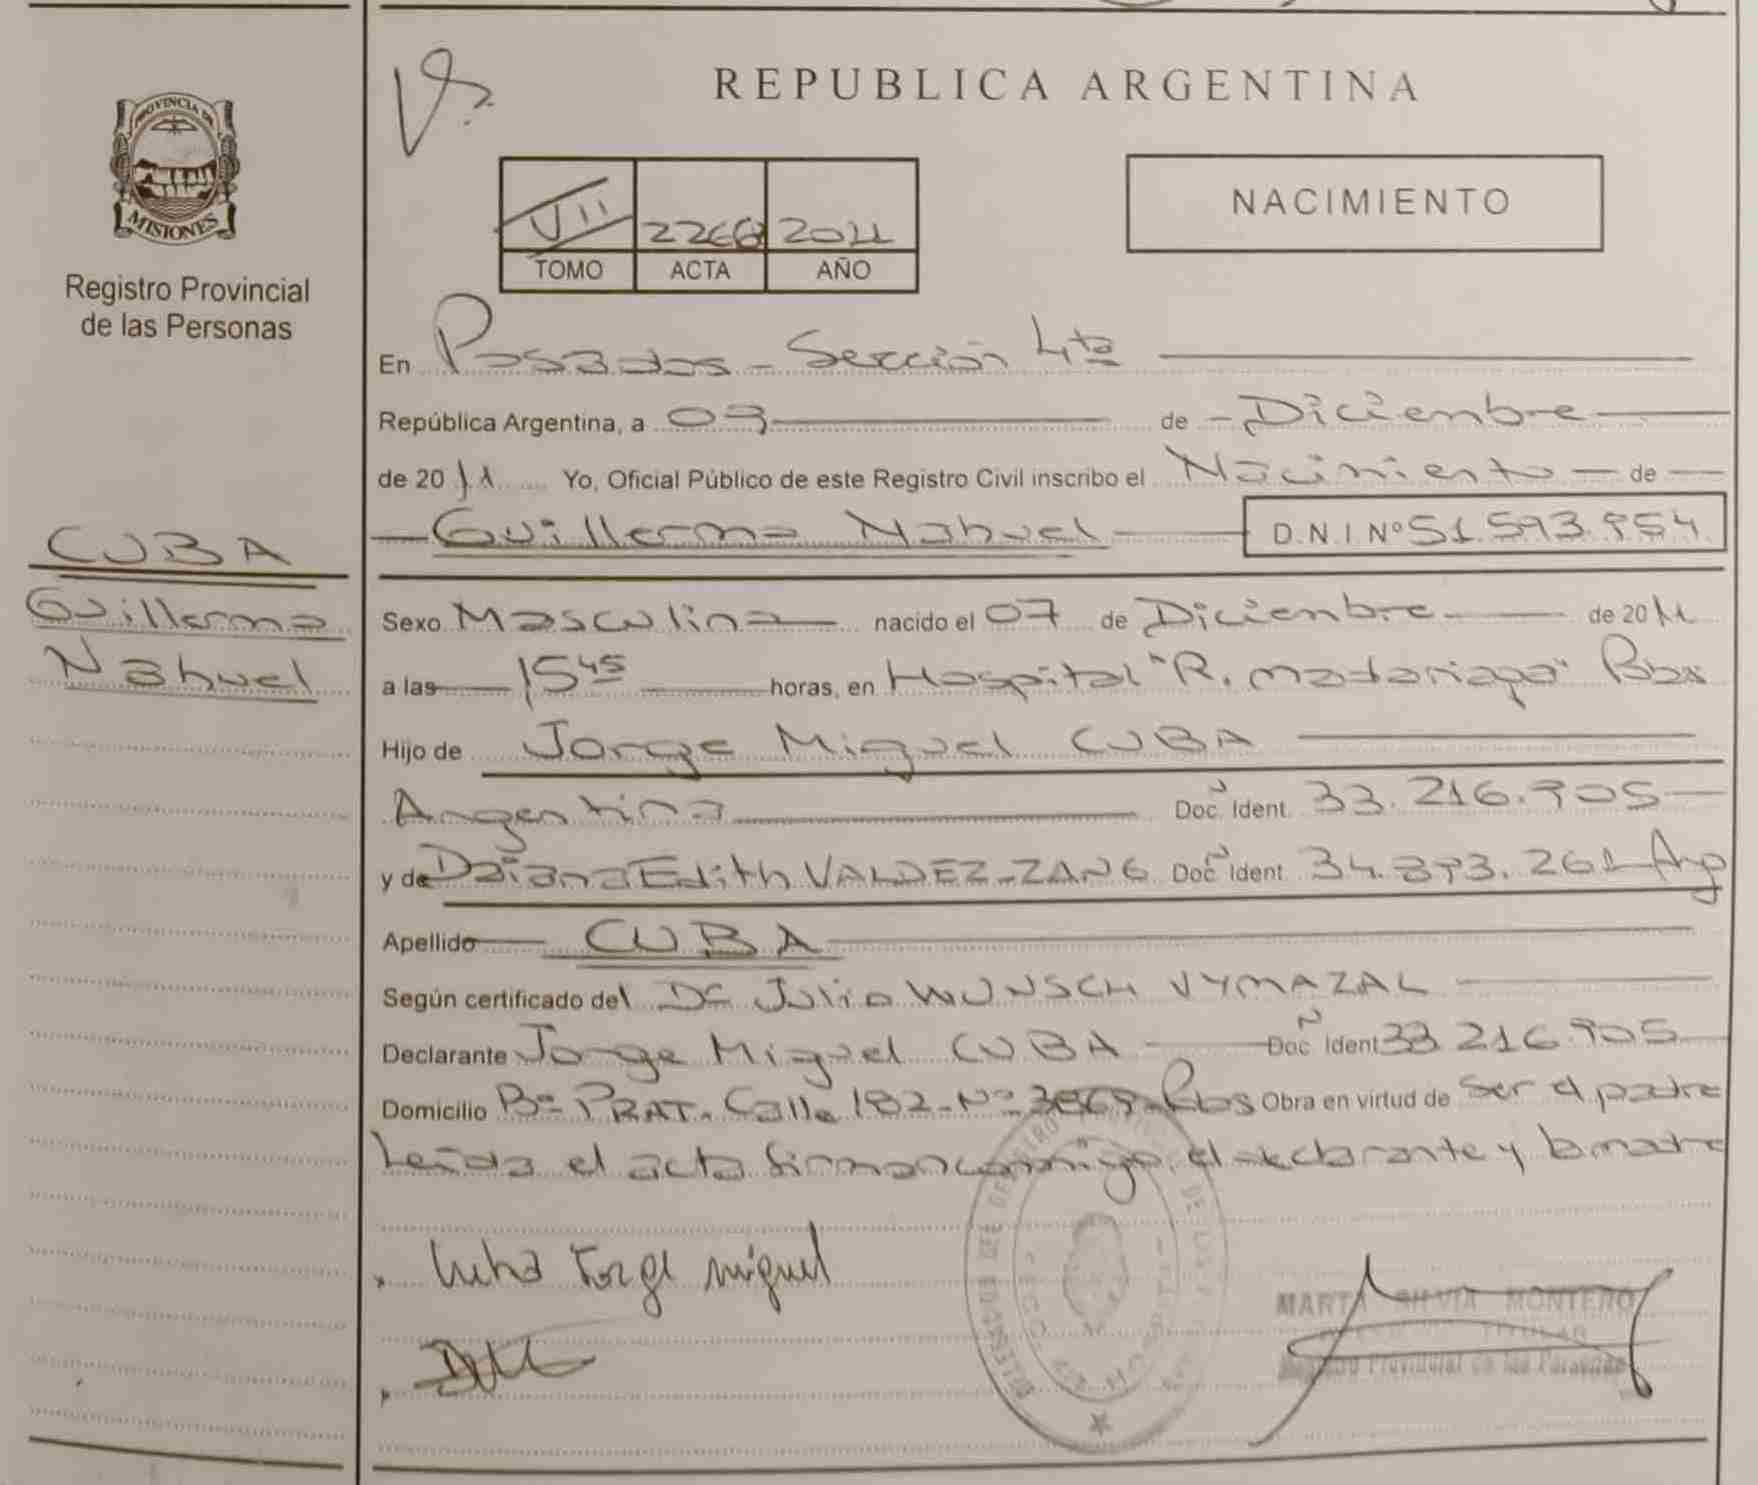 REPUBLICA ARGENTINA
PROVINCIA DE
MISIONES
Registro Provincial
de las Personas
VII 2011
TOMO ACTA AÑO
NACIMIENTO
En Posadas - Sección 4ta
República Argentina, a 09 de - Diciembre
de 2011 Yo, Oficial Público de este Registro Civil inscribo el Nacimiento - de
Guillermo Nahuel D.N.I Nº 51.593.954
CUBA
Guillermo
Nahuel
Sexo Masculino nacido el 07 de Diciembre de 2011
a las 15 45 horas, en Hospital "R. Madariaga" Pdas
Hijo de Jorge Miguel CUBA
Argentino Doc. Ident. 33.216.905
y de Daiana Edith VALDEZ-ZANG Doc. Ident. 34.893.261 Arg
Apellido CUBA
Según certificado del Dr Julio WUNSCH VYMAZAL
Declarante Jorge Miguel CUBA Doc. Ident 33.216.905
Domicilio Bº PRAT. Calle 182 - Nº Pdas Obra en virtud de ser el padre
Leída el acta firman conmigo, el declarante y la madre
Cuba Jorge miguel
MARTA SILVIA MONTERO
TITULAR
Registro Provincial de las Personas